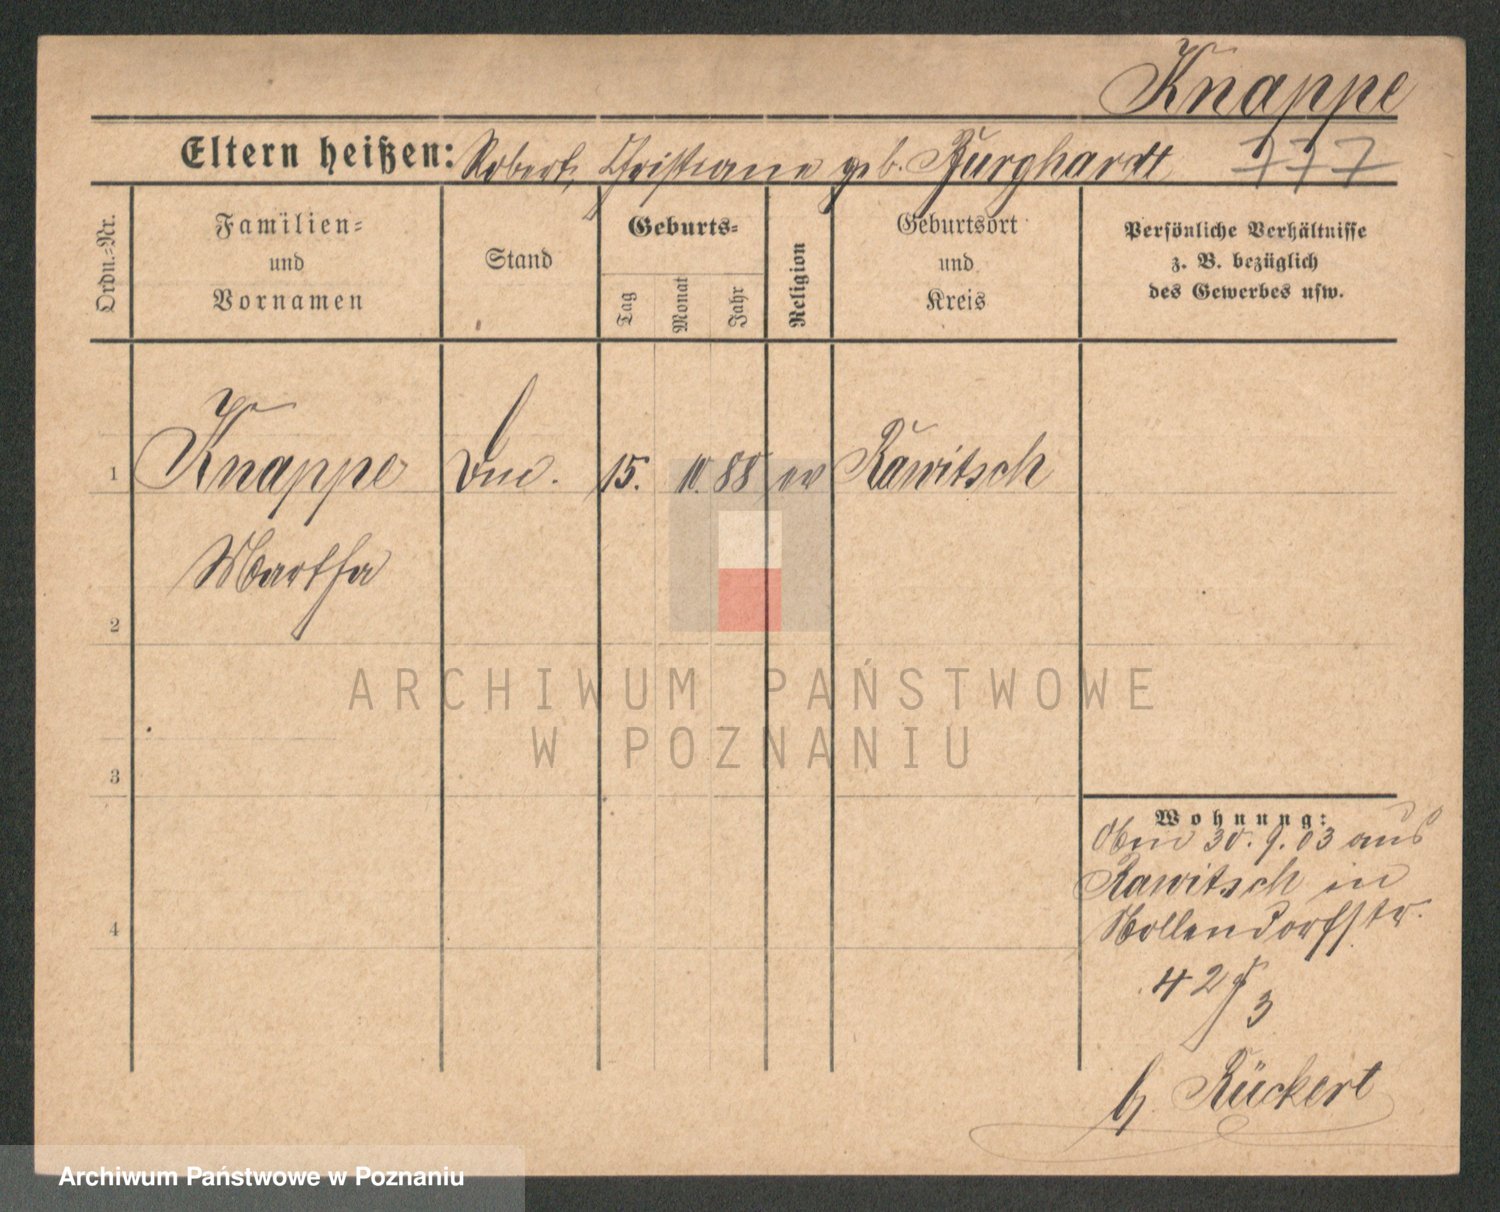 Knappe
Eltern heißen: Robert, Christiane geb. Burghardt 777
Ordn.=Nr.
Familien=
und
Vornamen
Stand
Geburts=
Tag
Monat
Jahr
Religion
Geburtsort
und
Kreis
Persönliche Verhältnisse
z. B. bezüglich
des Gewerbes usw.
1 Knappe 15. 10. 88 ev Rawitsch
Martha
2
ARCHIWUM PAŃSTWOWE
W POZNANIU
3
Wohnung:
30. 9. 03 aus
Rawitsch in
Nollendorfstr.
4
42 3
b. Rückert
Archiwum Państwowe w Poznaniu